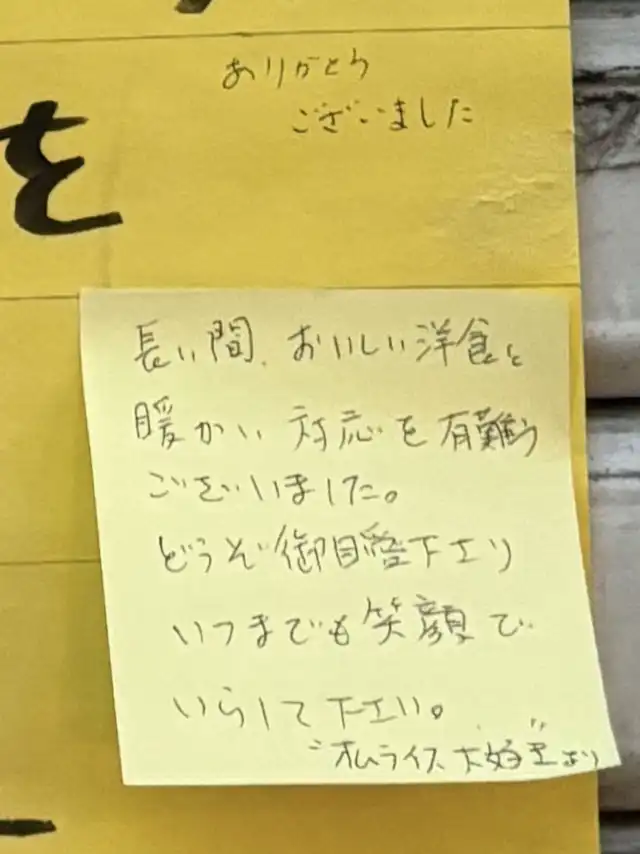 ありがとう
ございました
を
長い間、おいしい洋食と
暖かい対応を有難う
ございました。
どうぞ御自愛下さり
いつまでも笑顔で
いらして下さい。
"オムライス大好き"より